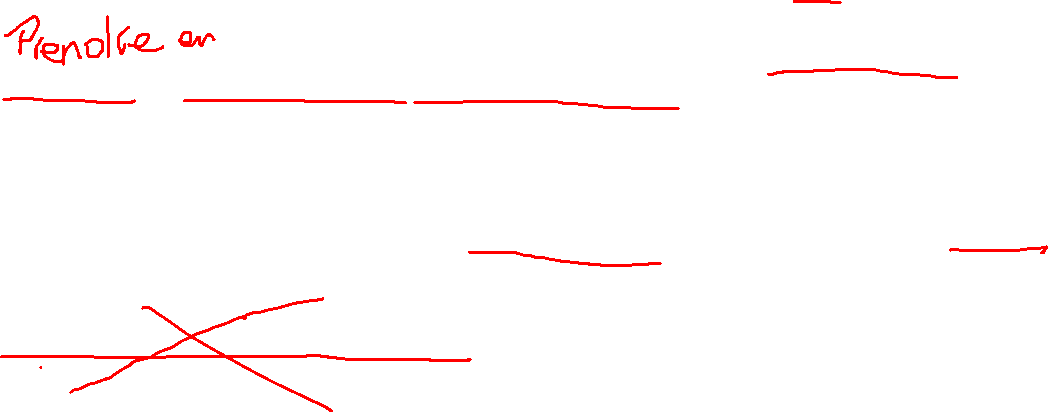 Prendre en